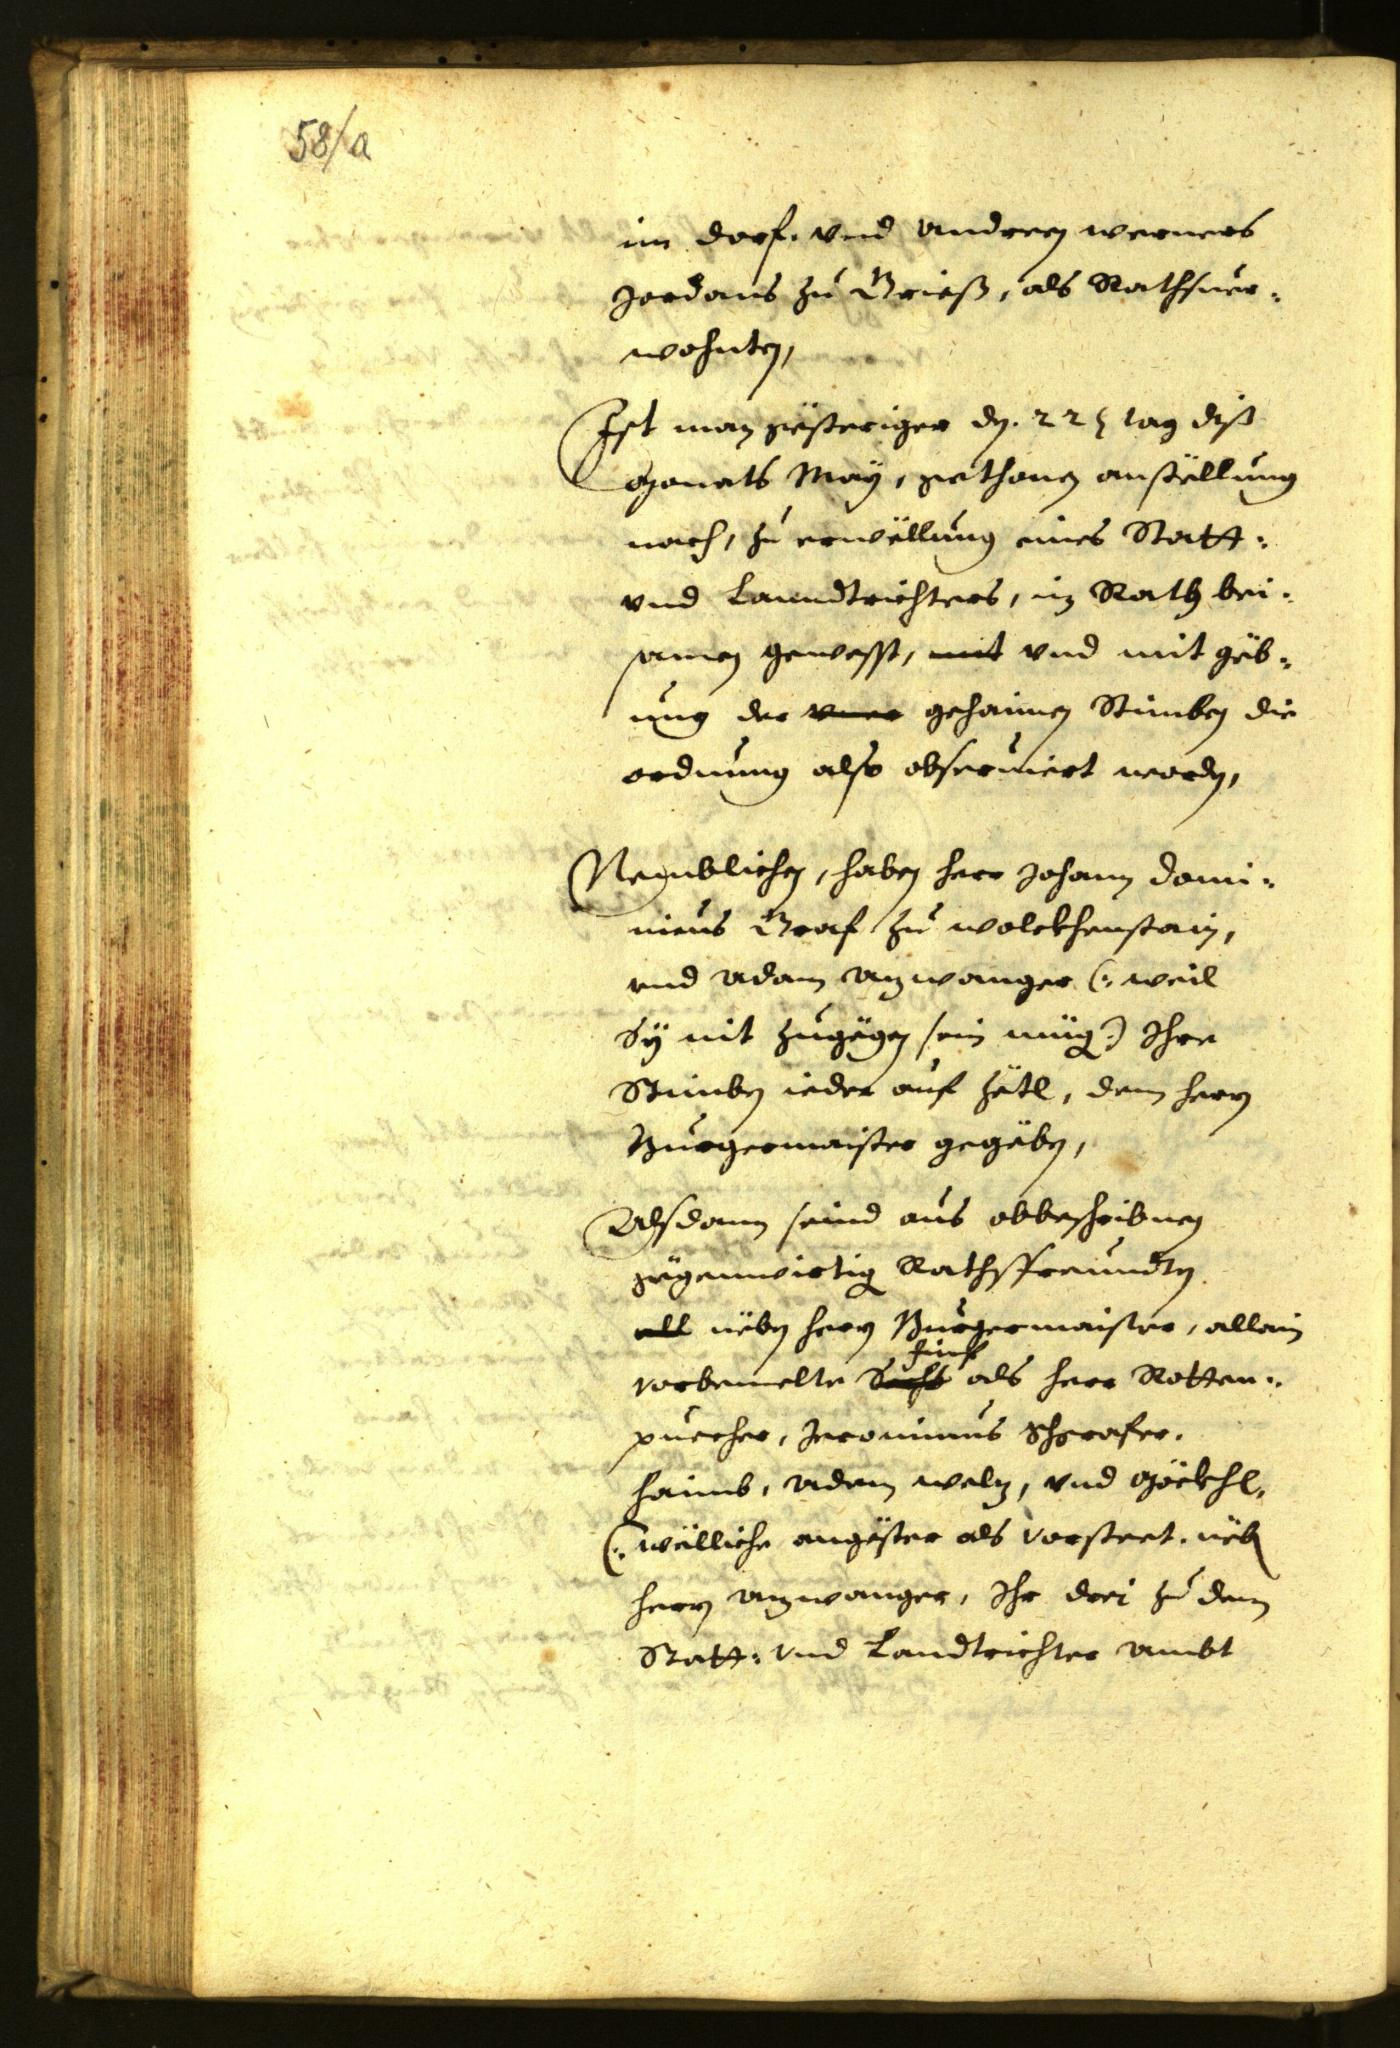 58/a
im dorf. vnd Andreen werners
Jordans zu Grieß, als Rathsuer¬
wohnten,
Ist man gësteriger dn. 22 tag diß
Monats Maÿ, gethonen anstëllung
nach, zu erwëllung eines Statt¬
vnd Lanndtrichters, in Rath bei¬
samen gewesst, mit vnd mit gëb¬
ung der gehaimen Stimben die
ordnung also obseruiert wordn,
Nemblichen, haben herr Johann Domi¬
nicus Graf zu wolckhenstain,
vnd Adam Anzwanger (: weil
Sÿ nit zugëgen sein müg :) Ihre
Stimben ieder auf zëtl, dem herrn
Burgermaister gegëbn,
Alsdann seind aus obbeschribnen
gëgenwirtig Rathsfreundtn
all nëbn herrn Burgermaister, allain
fünf
vorbemelte Sechs als herr Rotten¬
puecher, Jeronimus Schrafer.
haimb, Adam welz, vnd Möckhl,
(: wëlliche angëster als vorsteet. nëbn
herrn Anzwanger, Ihr drei zu dem
Statt¬ vnd Landtrichter Ambt